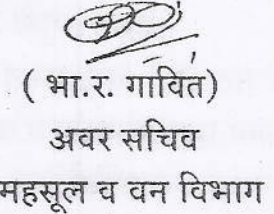 ( भा.र. गावित)
अवर सचिव
महसूल व वन विभाग